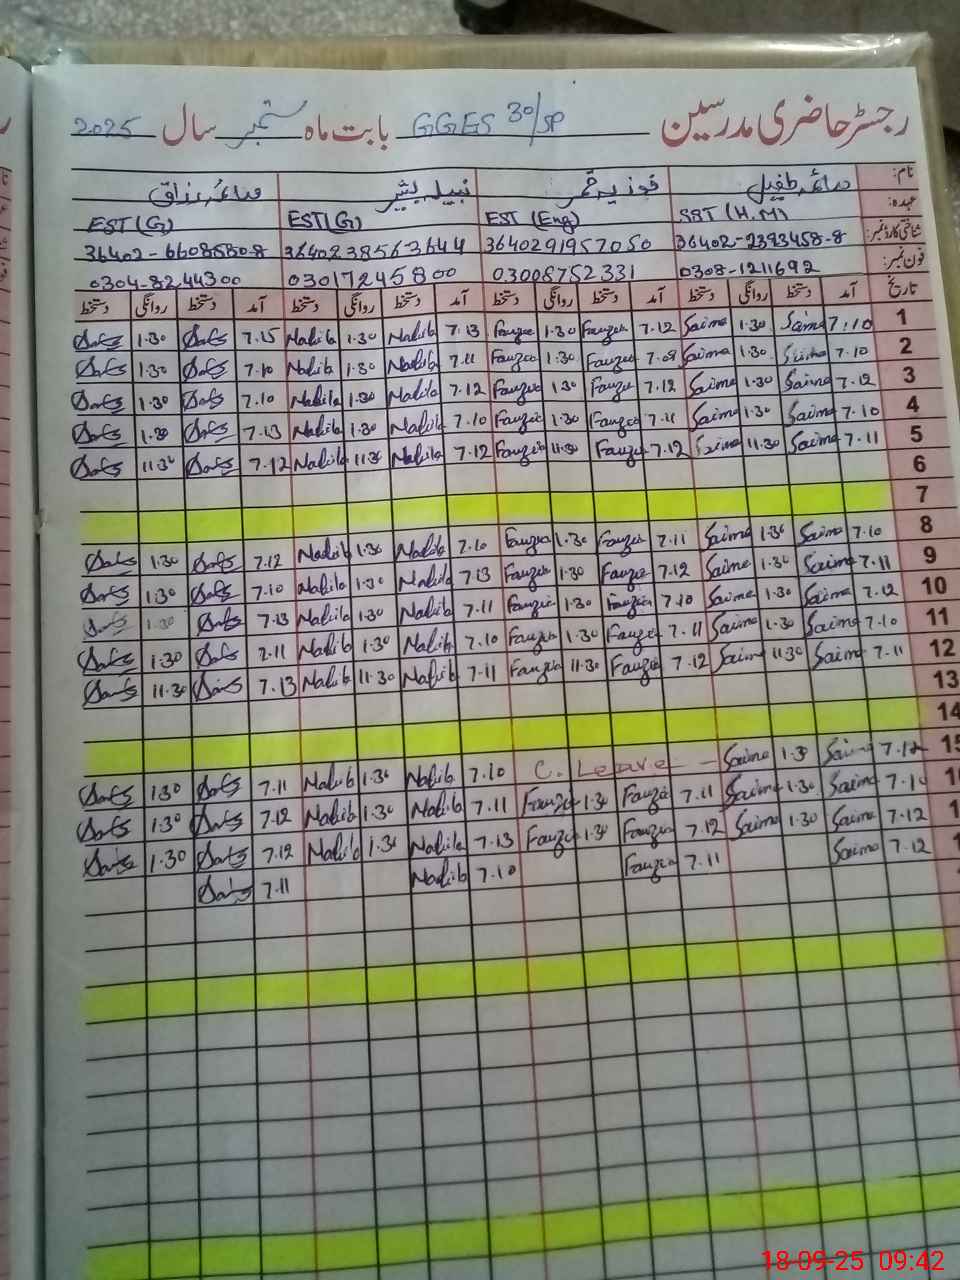 رجسٹر حاضری مدرسین GGES 30/SP بابت ماہ ستمبر سال 2025
نام: صائمہ طفیل فوزیہ قمر نبیلہ بشیر صائمہ رزاق
عہدہ: SST (H.M) EST (Eng) EST(G) EST(G)
شناختی کارڈ نمبر: 36402-2393458-8 3640291957050 3640238563644 36402-6608580-8
فون نمبر: 0308-1211692 03008752331 03017245800 0304-8244300
تاریخ آمد دستخط روانگی دستخط آمد دستخط روانگی دستخط آمد دستخط روانگی دستخط آمد دستخط روانگی دستخط
1 7:10 Saima 1.30 Saima 7.12 Fauzia 1.30 Fauzia 7.13 Nabila 1.30 Nabila 7.15 1.30
2 7.10 Saima 1.30 Saima 7.09 Fauzia 1.30 Fauzia 7.11 Nabila 1.30 Nabila 7.10 1.30
3 7.12 Saima 1.30 Saima 7.12 Fauzia 1.30 Fauzia 7.12 Nabila 1.30 Nabila 7.10 1.30
4 7.10 Saima 1.30 Saima 7.11 Fauzia 1.30 Fauzia 7.10 Nabila 1.30 Nabila 7.13 1.30
5 7.11 Saima 11.30 Saima 7.12 Fauzia 11.30 Fauzia 7.12 Nabila 11.30 Nabila 7.12 11.30
6
7
8 7.10 Saima 1.30 Saima 7.11 Fauzia 1.30 Fauzia 7.10 Nabila 1.30 Nabila 7.12 1.30
9 7.11 Saima 1.30 Saima 7.12 Fauzia 1.30 Fauzia 7.13 Nabila 1.30 Nabila 7.10 1.30
10 7.12 Saima 1.30 Saima 7.10 Fauzia 1.30 Fauzia 7.11 Nabila 1.30 Nabila 7.13 1.30
11 7.10 Saima 1.30 Saima 7.11 Fauzia 1.30 Fauzia 7.10 Nabila 1.30 Nabila 7.11 1.30
12 7.11 Saima 11.30 Saima 7.12 Fauzia 11.30 Fauzia 7.11 Nabila 11.30 Nabila 7.13 11.30
13
14
15 7.12 Saima 1.30 Saima C. Leave 7.10 Nabila 1.30 Nabila 7.11 1.30
7.10 Saima 1.30 Saima 7.11 Fauzia 1.30 Fauzia 7.11 Nabila 1.30 Nabila 7.12 1.30
7.12 Saima 1.30 Saima 7.12 Fauzia 1.30 Fauzia 7.13 Nabila 1.30 Nabila 7.12 1.30
7.12 Saima 7.11 Fauzia 7.10 Nabila 7.11
18-09-25 09:42